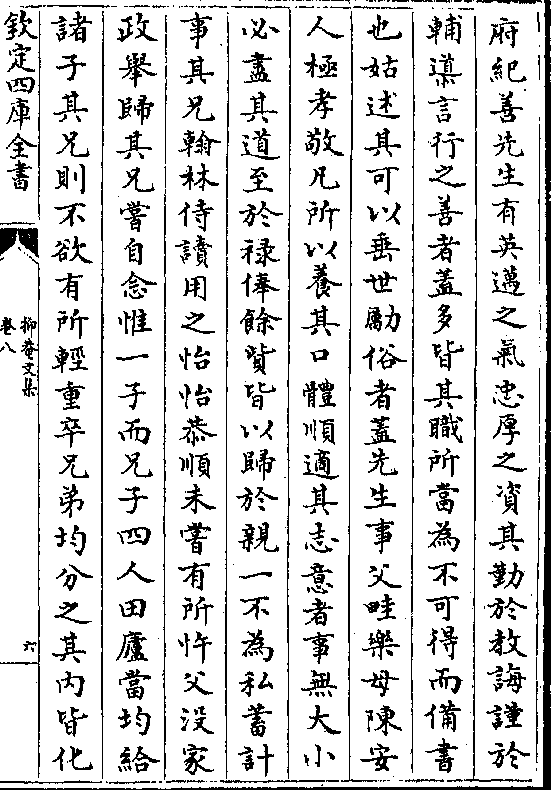 府紀善先生有英邁之氣忠厚之資其勤於教誨謹於
輔導言行之善者蓋多皆其職所當為不可得而備書
也姑述其可以垂世勵俗者蓋先生事父畦樂母陳安
人極孝敬凡所以養其口體順適其志意者事無大小
必盡其道至於祿俸餘貲皆以歸於親一不為私蓄計
事其兄翰林侍讀用之怡怡恭順未嘗有所忤父沒家
政舉歸其兄嘗自念惟一子而兄子四人田廬當均給
諸子其兄則不欲有所輕重卒兄弟均分之其内皆化
欽定四庫全書
抑菴文集
卷八
六